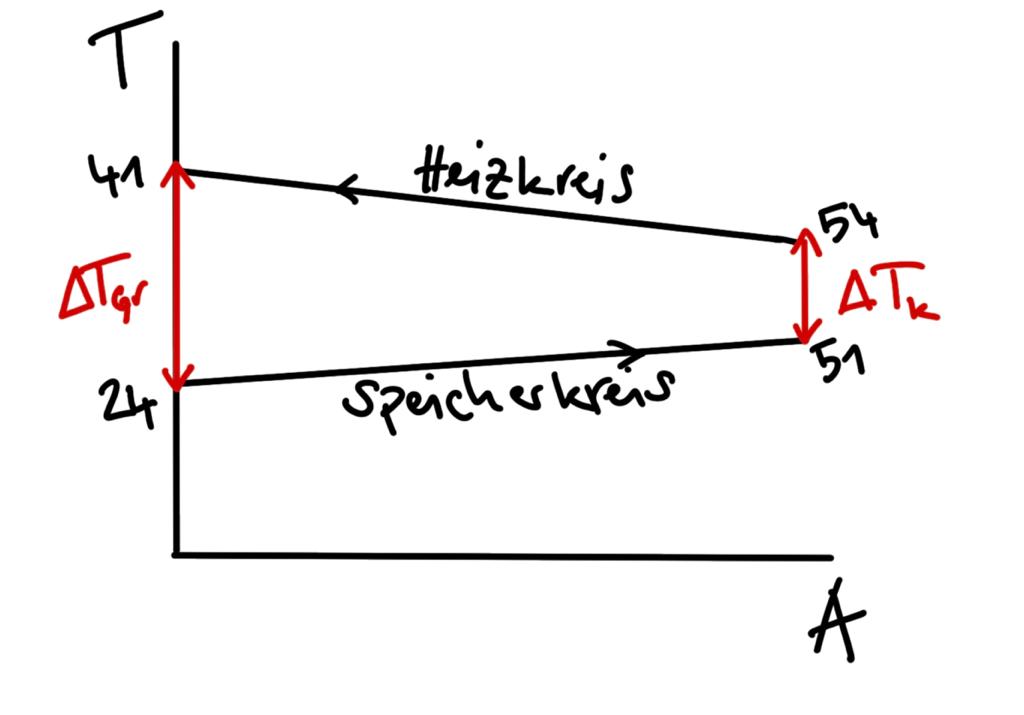 T
41
Heizkreis
54
ΔTgr
ΔTk
24
Speicherkreis
51
A